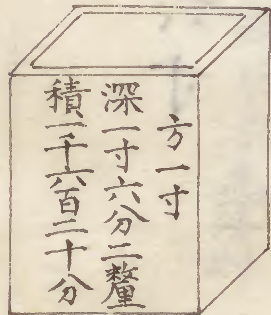 方一寸
深一寸六分二釐
積一千六百二十分